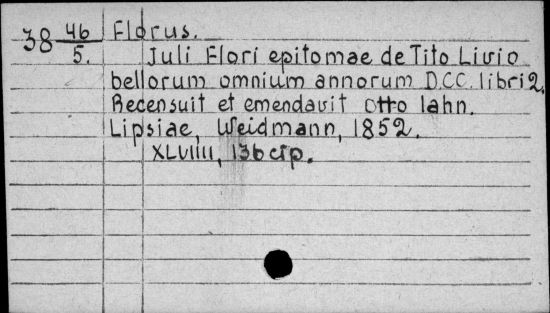 38 46/5. Florus.
Juli Flori epitomae de Tito Livio
bellorum omnium annorum DCC. libri 2.
Recensuit et emendavit Otto Iahn.
Lipsiae, Weidmann, 1852.
XLVIIII, 136 стр.